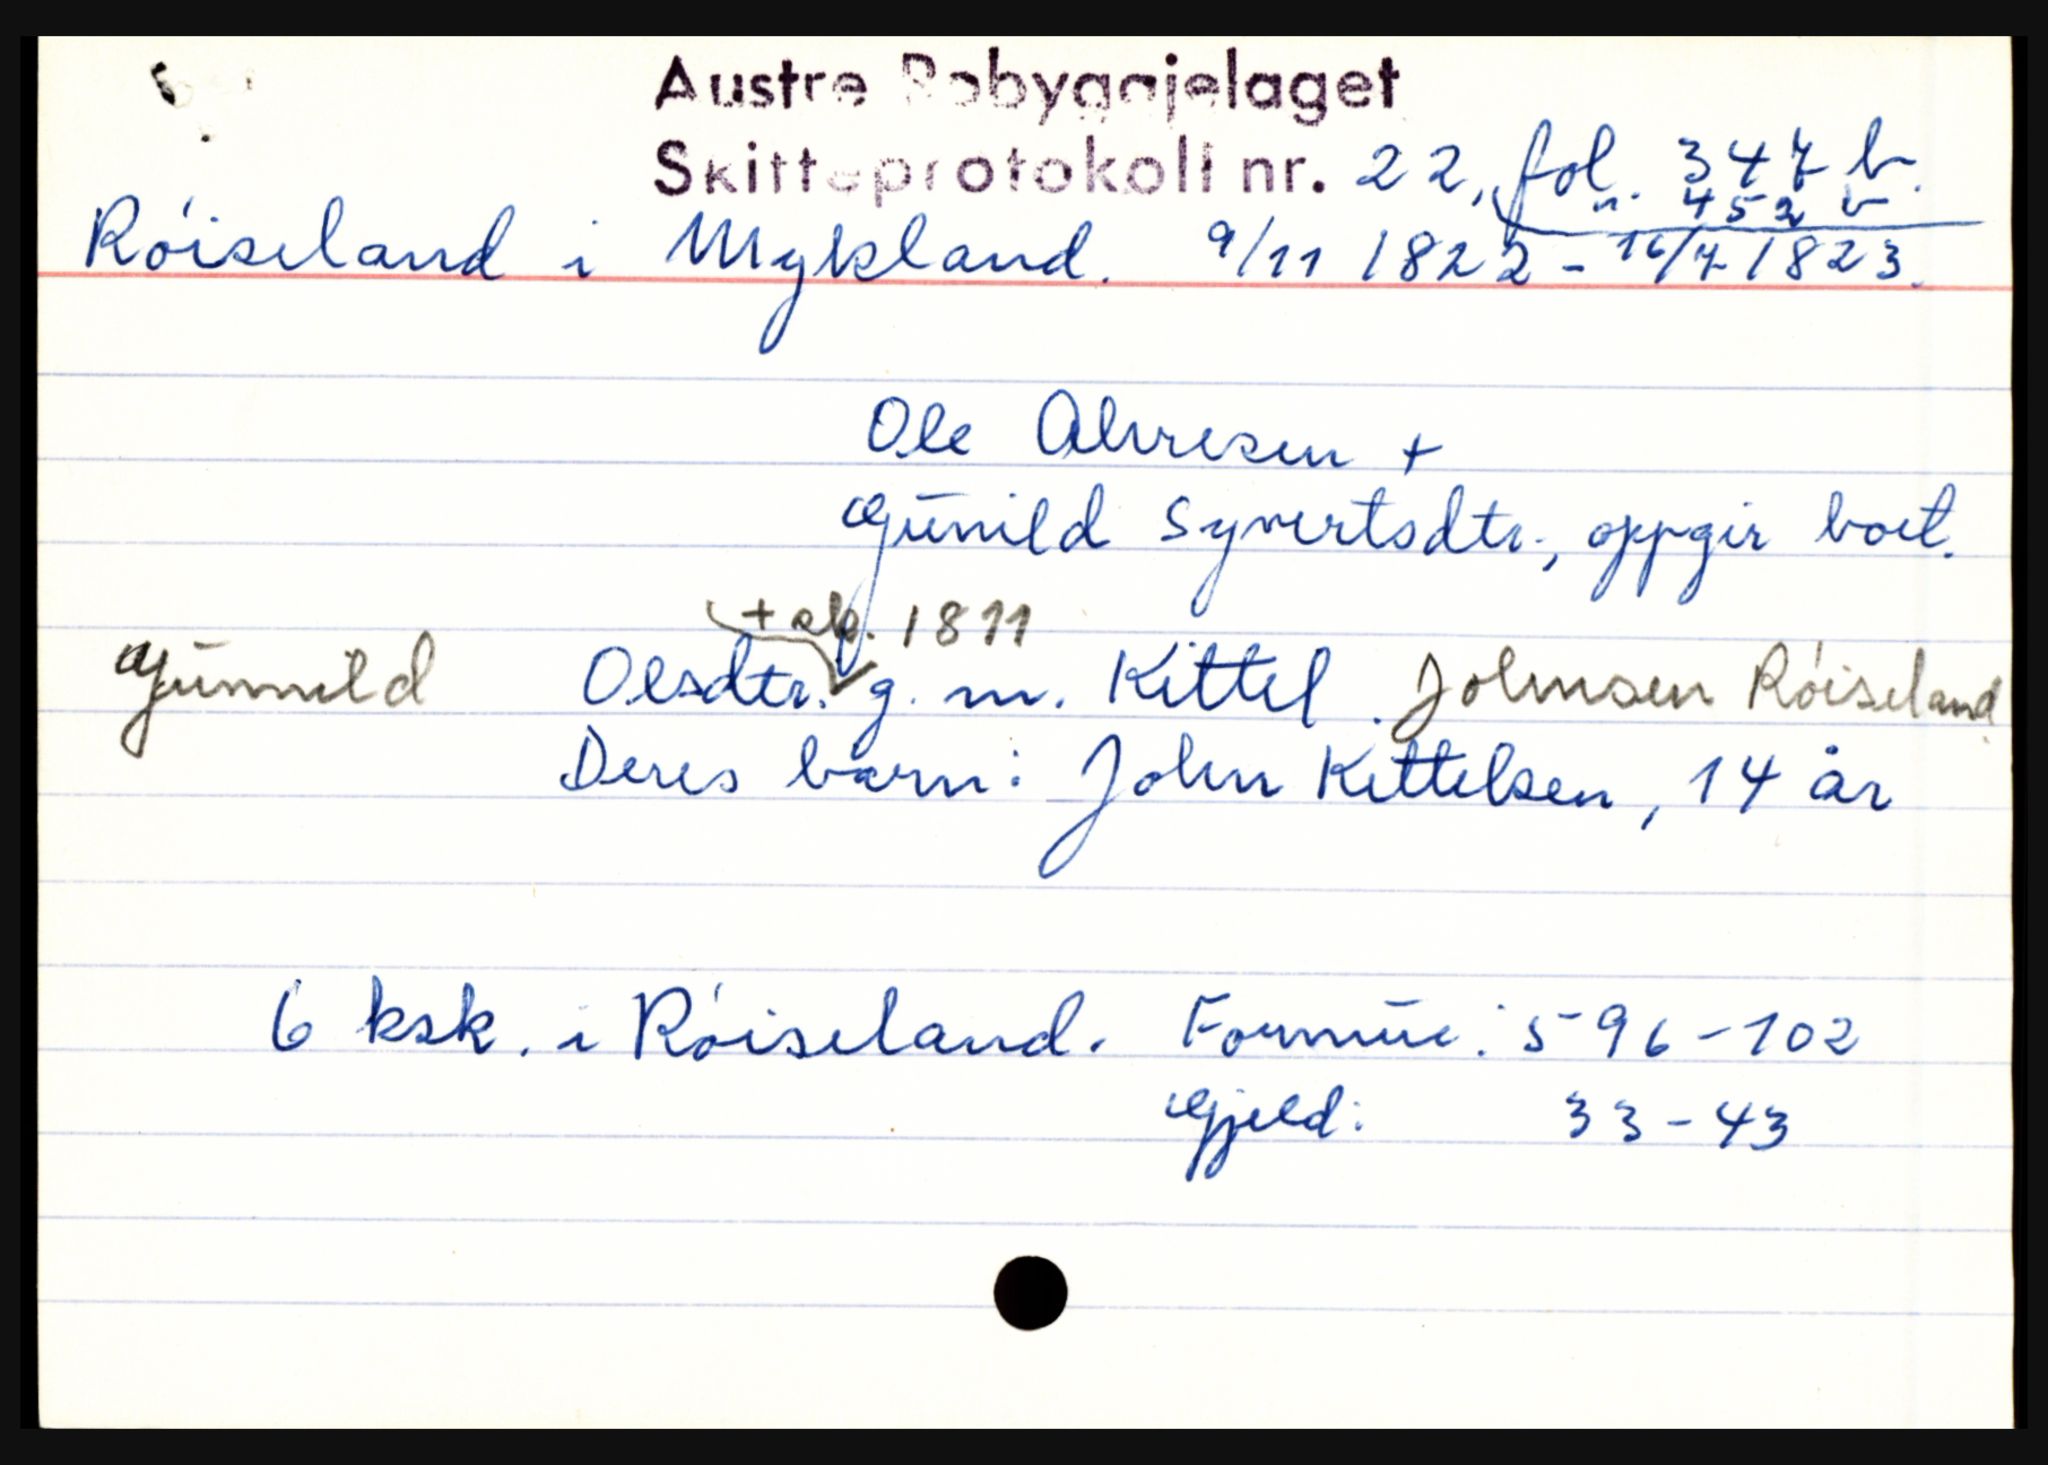 Austre Robyggjelaget
Skifteprotokoll nr. 22, fol. 347 b.
" 452 b
Röiseland i Mykland. 9/11 1822 - 16/7 1823.
Ole Alvresen +
Gunild Syvertsdtr., oppgir boet.
+ 1811
Gunnild Olsdtr. g. m. Kittel Johnsen Röiseland
Deres barn: John Kittelsen, 14 år
6 ksk. i Röiseland. Formue: 596-102
Gjeld: 33-43